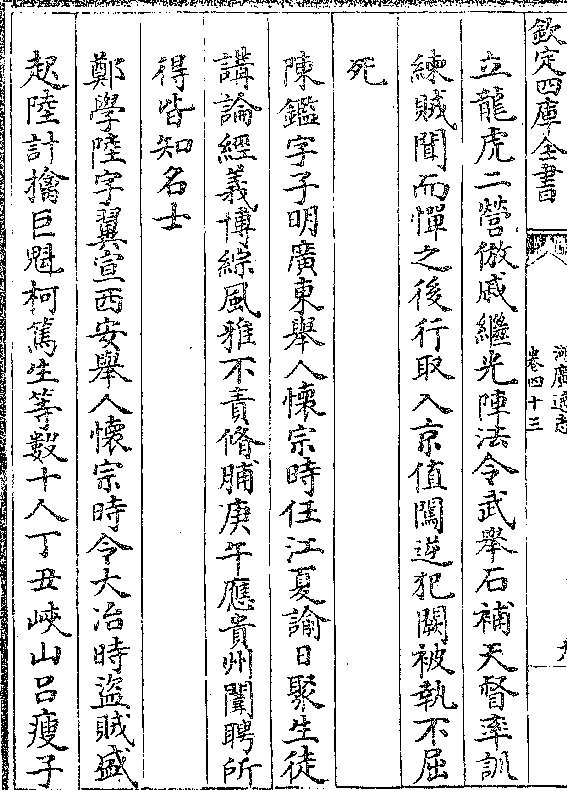 欽定四庫全書
湖廣通志
卷四十三
立龍虎二營倣戚繼光陣法令武舉石補天督率訓
練賊聞而憚之後行取入京值闖逆犯闕被執不屈
死
陳鑑字子明廣東舉人懷宗時任江夏諭日聚生徒
講論經義博綜風雅不責脩脯庚午應貴州闈聘所
得皆知名士
鄭學陸字翼宣西安舉人懷宗時令大冶時盜賊盛
起陸計擒巨魁柯篤生等數十人丁丑峽山呂瘦子